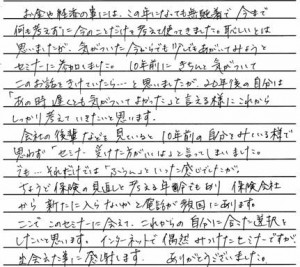 お金や経済の事には、この年になっても無頓着で 今まで
何も考えずに今のことだけ考え使ってきました。恥しいとは
思いましたが、気がついた今からでも少しでもあがいてみようと
セミナーに参加しました。 10年前に きちんと気がついて
このお話ときけていたら…と思いましたが、20年後の自分は
「あの時 遅くとも気がついてよかった」と言える様にこれから
しっかり考えていきたいと思います。
会社の後輩などを見ていると 10年前の自分とみている様で
思わず「セミナー受けた方がいいよ」と言ってしまいました。
でも…それだけでは「ふぅ〜ん」といった感じでしたが。
ちょうど保険の見直しを考える年齢でもあり 保険会社
から 新たに入らないかと電話が頻回にあります。
ここで このセミナーに会えて、これからの自分に合った選択を
したいと思います。 インターネットで偶然みつけたセミナーですが
出会えた事に感謝します。 ありがとうございました。